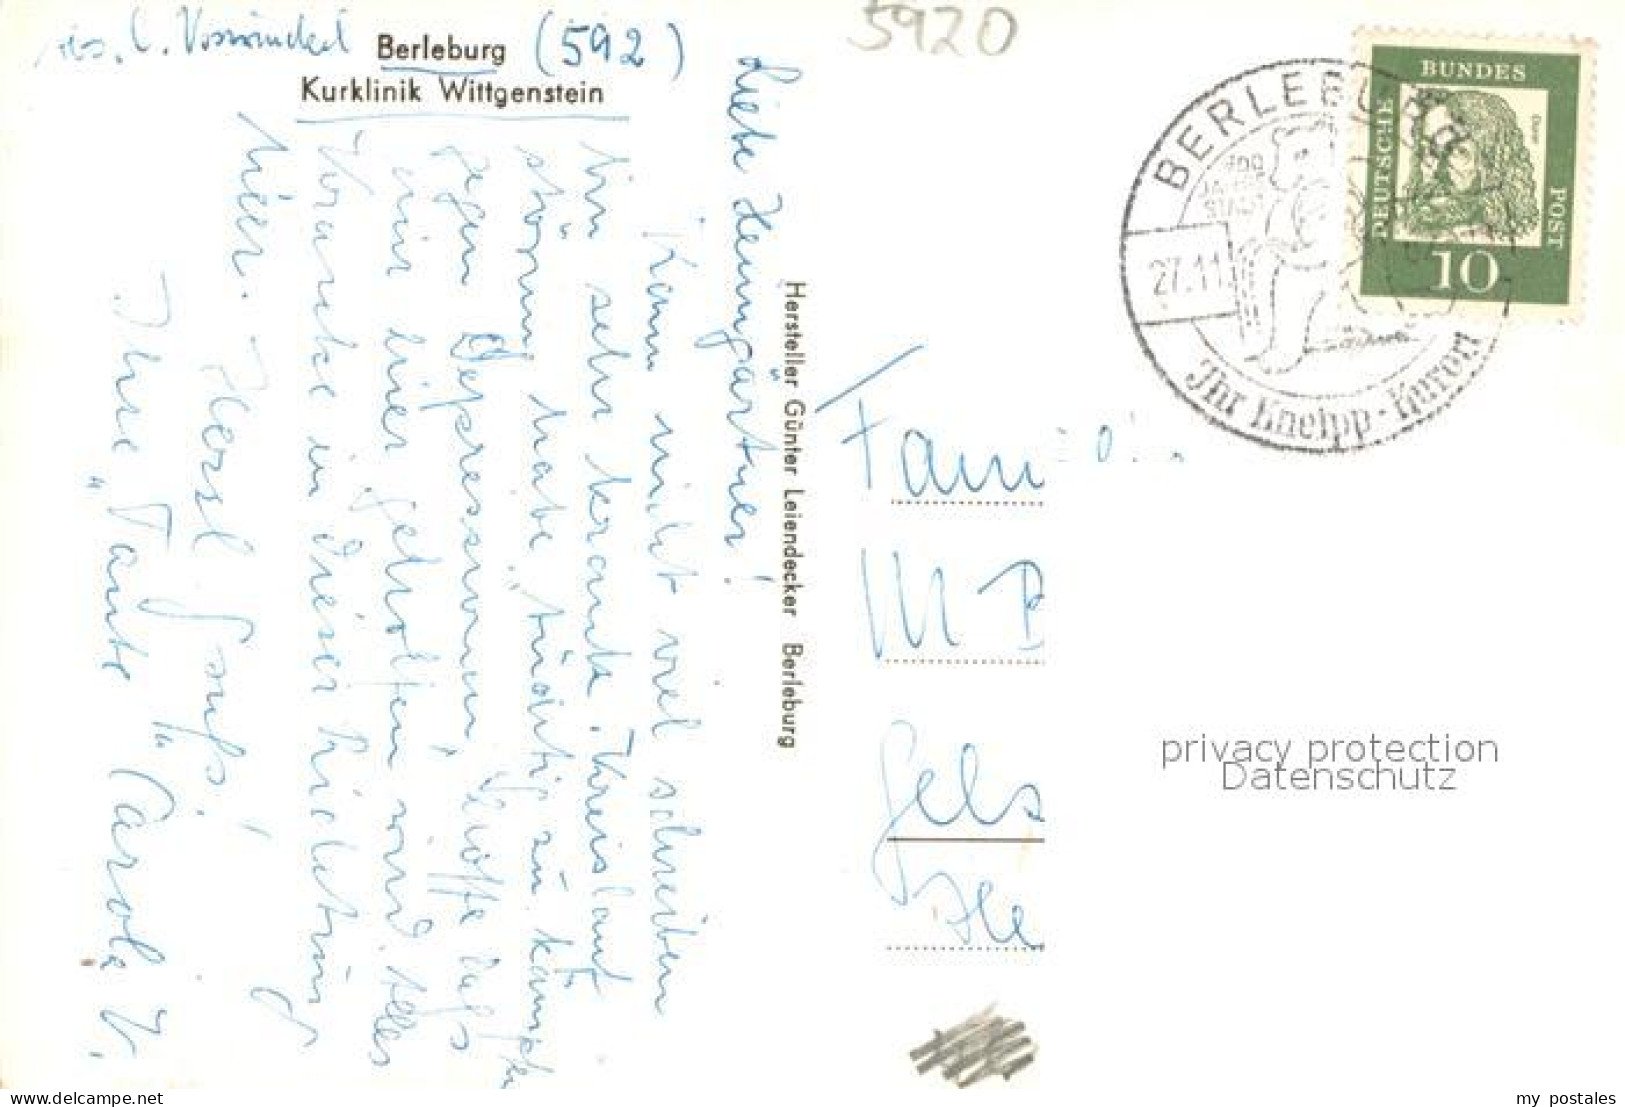 C. Vosswinckel
Berleburg (592)
Kurklinik Wittgenstein
5920
Liebe Heimgärtner!
Kann nicht viel schreiben
bin sehr krank. Kreislauf
störung, habe "tüchtig" zu kämpfen
gegen "Depressionen", hoffe daß
mir hier geholfen wird. Alles
Kranke in dieser Richtung
hier.
Herzl. Gruß!
Ihre "Tante" Carola V.
Hersteller Günter Leiendecker Berleburg
BERLEBURG
700 JAHRE STADT
27.11
Ihr Kneipp-Kurort
DEUTSCHE BUNDES POST
Dürer
10
Fam
M B
Gels
privacy protection
Datenschutz
www.delcampe.net
my_postales